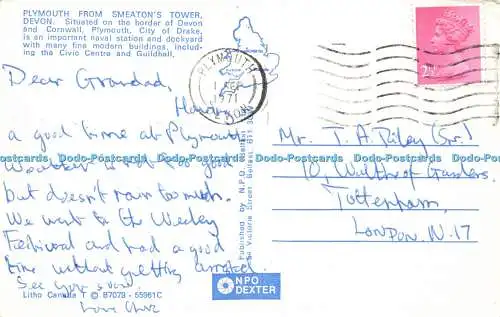 PLYMOUTH FROM SMEATON'S TOWER,
DEVON. Situated on the border of Devon
and Cornwall, Plymouth, City of Drake,
is an important naval station and dockyard
with many fine modern buildings, includ-
ing the Civic Centre and Guildhall.
Dear Grandad,
Having
a good time at Plymouth
Weather is not too good
but doesn't rain too much.
We went to the Weeley
Festival and had a good
time without getting arrested.
See you soon.
Love Chris
Litho Canada T © B7079 - 55961C
Published by N.P.O.
Victoria Street, Belfast, BT1
NPO
DEXTER
PLYMOUTH
1971
DEVON
2½P
Mr. J. A. Riley (Snr.)
10, Gardens,
Tottenham,
LONDON. N.17
Dodo-Postcards Dodo-Postcards Dodo-Postcards Dodo-Postcards Dodo-Postcards Dodo-Postcards Dodo-Postcards